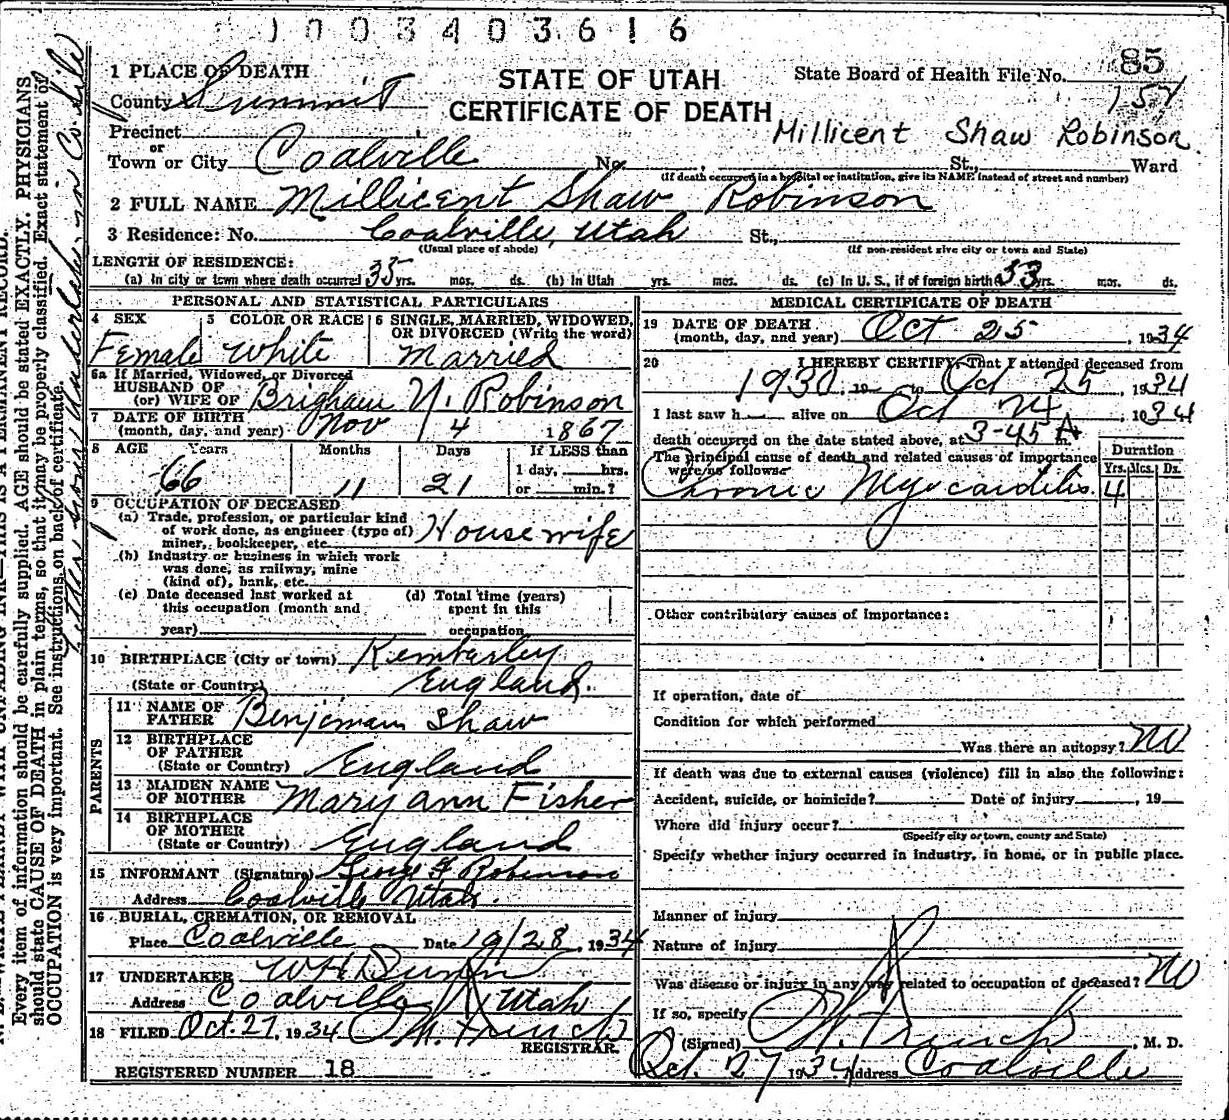 1003403616
1 PLACE OF DEATH
STATE OF UTAH
CERTIFICATE OF DEATH
State Board of Health File No. 85
157
County Summit
Millicent Shaw Robinson
Precinct
or
Town or City Coalville No. St., Ward
(If death occurred in a hospital or institution, give its NAME instead of street and number)
2 FULL NAME Millicent Shaw Robinson
3 Residence: No. Coalville, Utah St.,
(Usual place of abode) (If non-resident give city or town and State)
LENGTH OF RESIDENCE:
(a) In city or town where death occurred 35 yrs. mos. ds. (b) In Utah yrs. mos. ds. (c) In U. S., if of foreign birth 53 yrs. mos. ds.
PERSONAL AND STATISTICAL PARTICULARS
4 SEX
Female
5 COLOR OR RACE
White
6 SINGLE, MARRIED, WIDOWED,
OR DIVORCED (Write the word)
Married
6a If Married, Widowed, or Divorced
HUSBAND OF
(or) WIFE OF Brigham N. Robinson
7 DATE OF BIRTH
(month, day, and year) Nov 4 1867
8 AGE Years Months Days If LESS than
1 day, hrs.
66 11 21 or min.?
9 OCCUPATION OF DECEASED
(a) Trade, profession, or particular kind
of work done, as engineer (type of)
miner, bookkeeper, etc. Housewife
(b) Industry or business in which work
was done, as railway, mine
(kind of), bank, etc.
(c) Date deceased last worked at
this occupation (month and
year)
(d) Total time (years)
spent in this
occupation
10 BIRTHPLACE (City or town) Kemberley
(State or Country) England.
PARENTS
11 NAME OF
FATHER Benjeman Shaw
12 BIRTHPLACE
OF FATHER
(State or Country) England
13 MAIDEN NAME
OF MOTHER Mary ann Fisher
14 BIRTHPLACE
OF MOTHER
(State or Country) England
15 INFORMANT (Signature) George F Robinson
Address Coalville Utah.
16 BURIAL, CREMATION, OR REMOVAL
Place Coalville Date 10/28, 1934
17 UNDERTAKER
Address Coalville, Utah
18 FILED Oct. 27, 1934
REGISTRAR.
REGISTERED NUMBER 18
MEDICAL CERTIFICATE OF DEATH
19 DATE OF DEATH
(month, day, and year) Oct 25, 1934
20 I HEREBY CERTIFY, That I attended deceased from
1930, 19 to Oct 25, 1934
I last saw h alive on Oct 24, 1934
death occurred on the date stated above, at 3-45 A m.
The principal cause of death and related causes of importance
were as follows:
Duration
Yrs. Mos. Ds.
Chronic Myocarditis. 4
Other contributory causes of importance:
If operation, date of
Condition for which performed
Was there an autopsy? No
If death was due to external causes (violence) fill in also the following:
Accident, suicide, or homicide? Date of injury, 19
Where did injury occur?
(Specify city or town, county and State)
Specify whether injury occurred in industry, in home, or in public place.
Manner of injury
Nature of injury
Was disease or injury in any way related to occupation of deceased? No
If so, specify
(Signed), M. D.
Oct. 27 1934 Address Coalville
Every item of information should be carefully supplied. AGE should be stated EXACTLY. PHYSICIANS
should state CAUSE OF DEATH in plain terms, so that it may be properly classified. Exact statement of
OCCUPATION is very important. See instructions on back of certificate.